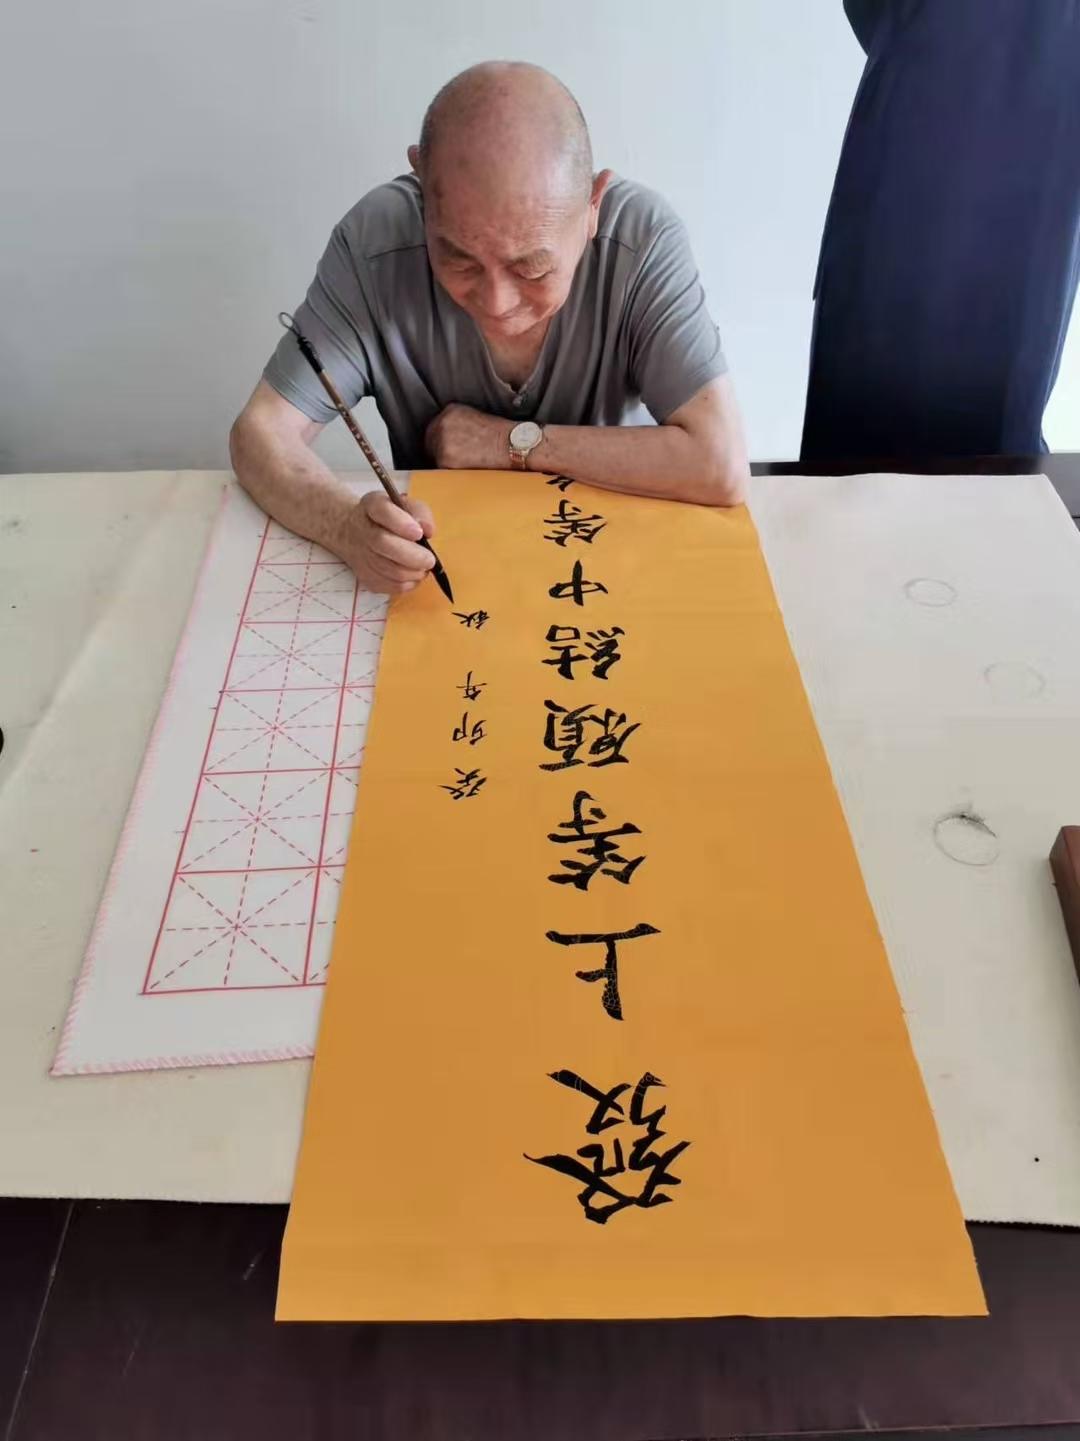 發上等願結中等
癸卯年秋